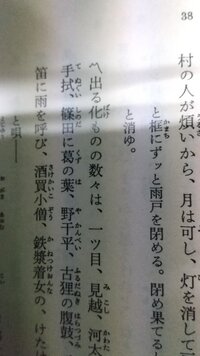 38
村の人が煩いから、月は可し、灯を消して
と框にずッと雨戸を閉める。閉め果てると
と消ゆ。
〽出る化ものの数々は、一ツ目、見越、河太
手拭、篠田に葛の葉、野干平、古狸の腹鼓、
笛に雨を呼び、酒買小僧、鉄漿着女の、けた
と唄――